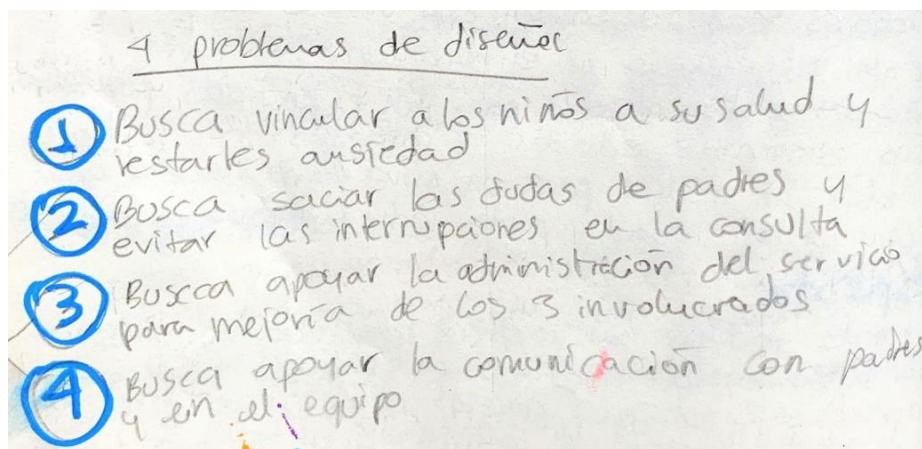 4 problemas de diseño
① Busca vincular a los niños a su salud y
restarles ansiedad
② Busca saciar las dudas de padres y
evitar las interrupciones en la consulta
③ Buscca apoyar la administración del servicio
para mejoría de los 3 involucrados
④ Busca apoyar la comunicación con padres
y en el equipo